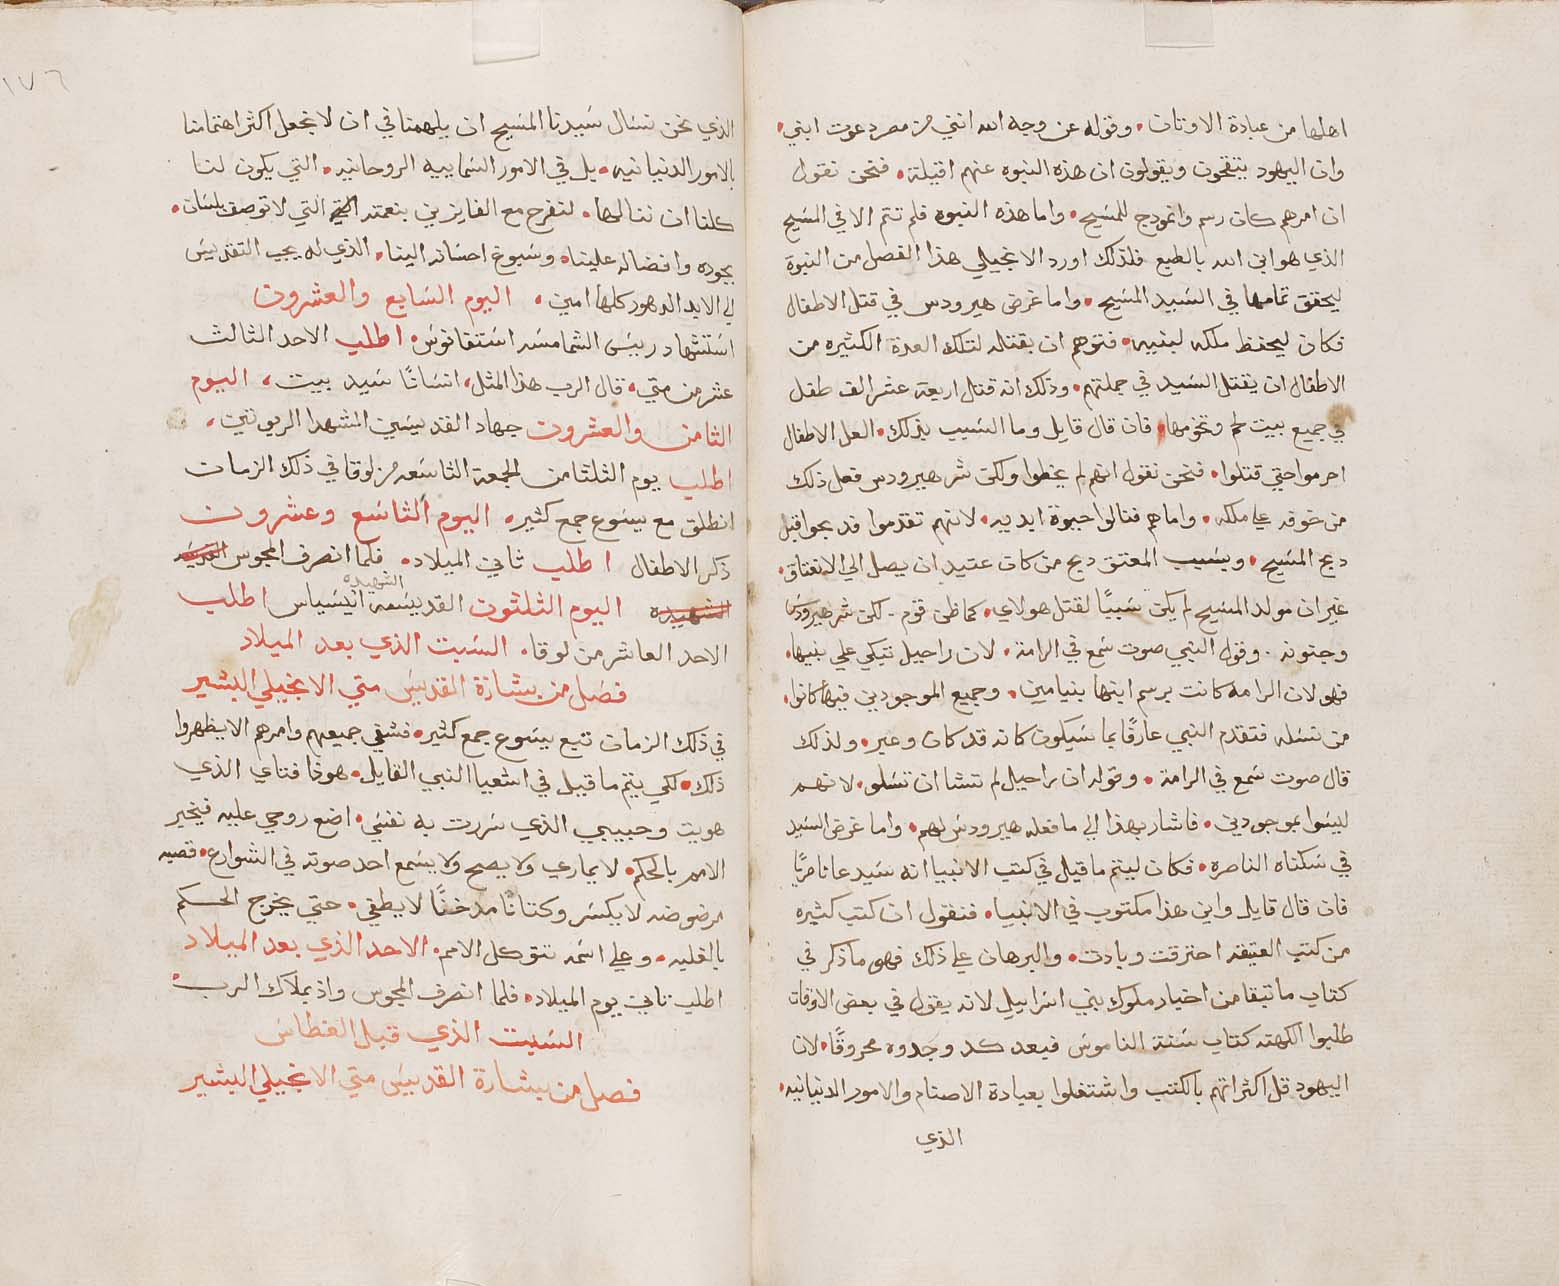 اهلها من عبادة الاوثان. وقوله عن وجه الله انني من مصر دعوت ابني.
وان اليهود يتنفخون ويقولون ان هذه النبوه عنهم اقبلة. فنحن نقول
ان امرهم كان رسم وانموذج للمسيح. واما هذه النبوه فلم تتم الا في المسيح
الذي هو ابن الله بالطبع فلذلك اورد الانجيلي هذا الفصل من النبوة
ليحقق تمامها في السيد المسيح. واما غرض هيرودس في قتل الاطفال
فكان ليحفظ ملكه لبنيه. فتوهم ان بقتله لتلك العدة الكثيره من
الاطفال ان يقتل السيد في جملتهم. وذلك انه قتل اربعة عشر الف طفل
في جميع بيت لحم وتخومها. فان قال قايل وما السبب بذلك. العل الاطفال
اجرموا حتي قتلوا. فنحن نقول انهم لم يخطوا ولكن شر هيرودس فعل ذلك
من خوفه علي ملكه. واما هم فنالوا حيوة ابديه. لانهم تقدموا فدبحوا قبل
دبح المسيح. وبسبب المعتق دبح من كان عتيد ان يصل الي الانعتاق.
غير ان مولد المسيح لم يكن سببًا لقتل هولاي. كما ظن قوم. لكن شر هيرودس
وجنونه. وقول النبي صوت سمع في الرامة. لان راحيل تبكي علي بنيها.
فهو لان الرامه كانت برسم ابنها بنيامين. وجميع الموجودين فيها كانوا.
من نسله فتقدم النبي عارفًا بما سيكون كانه قد كان وعبر. ولذلك
قال صوت سمع في الرامة. وقوله ان راحيل لم تشا ان تسلو. لانهم
ليسوا بموجودين. فاشار بهذا الي ما فعله هيرودس لهم. واما غرض السيد
في سكناه الناصره. فكان ليتم ما قيل في كتب الانبيا انه سيدعا ناصريًا
فان قال قايل واين هذا مكتوب في الانبيا. فنقول ان كتب كثيره
من كتب العتيقه احترقت وبادت. والبرهان علي ذلك فهو ما ذكر في
كتاب ما تبقا من اخبار ملوك بني اسراييل لانه يقول في بعض الاوقات
طلبوا الكهنه كتاب سنة الناموس فبعد كد وجدوه محروقًا. لان
اليهود قل اكثراثهم بالكتب واشتغلوا بعبادة الاصنام والامور الدنيانيه.
الذي
١٧٦
الذي نحن نسال سيدنا المسيح ان يلهمنا في ان لا نجعل اكثر اهتمامنا
بالامور الدنيانيه. بل في الامور السماييه الروحانيه. التي يكون لنا
كلنا ان ننالها. لنفرح مع الفايزين بنعمته التي لا توصف بلسان.
بجوده وافضاله علينا. وسبوغ احسانه الينا. الذي له يجب التقديس
الي الابد الدهور كلها امين. اليوم السابع والعشرون
استشهاد رييس الشمامسه استفانوس. اطلب الاحد الثالث
عشر من متي. قال الرب هذا المثل. انسانًا سيد بيت. اليوم
الثامن والعشرون جهاد القديسين الشهدا الربوتين.
اطلب يوم الثلثا من الجمعة التاسعه من لوقا في ذلك الزمان
انطلق مع يسوع جمع كثير. اليوم التاسع وعشرون
ذكر الاطفال اطلب ثاني الميلاد. فلما انصرف المجوس القديسه
الشهيده
الشهيده اليوم الثلثون القديسه انيسياس اطلب
الاحد العاشر من لوقا. السبت الذي بعد الميلاد
فصل من بشارة القديس متي الانجيلي البشير
في ذلك الزمان تبع يسوع جمع كثير. فشفي جميعهم وامرهم الا يظهروا
ذلك. لكي يتم ما قيل في اشعيا النبي القايل. هوذا فتاي الذي
هويت وحبيبي الذي سررت به نفسي. اضع روحي عليه فيخبر
الامم بالحكم. لا يماري ولا يصح ولا يسمع احد صوته في الشوارع. قصبه
مرضوضه لا يكسر وكتانًا مدخنًا لا يطفي. حتي يخرج الحكم
بالغلبه. وعلي اسمه تتوكل الامم. الاحد الذي بعد الميلاد
اطلب ثاني يوم الميلاد. فلما انصرف المجوس واذ بملاك الرب.
السبت الذي قبل الغطاس
فصل من بشارة القديس متي الانجيلي البشير